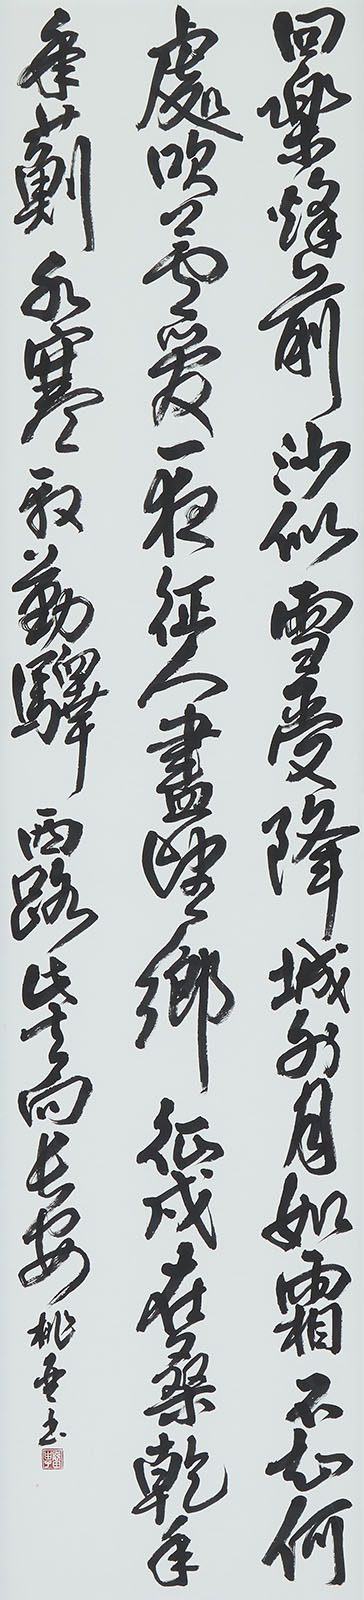 回樂烽前沙似雪受降城外月如霜不知何
處吹蘆管一夜征人盡望鄉征戍在桑乾年
年薊水寒殷勤驛西路此去向長安